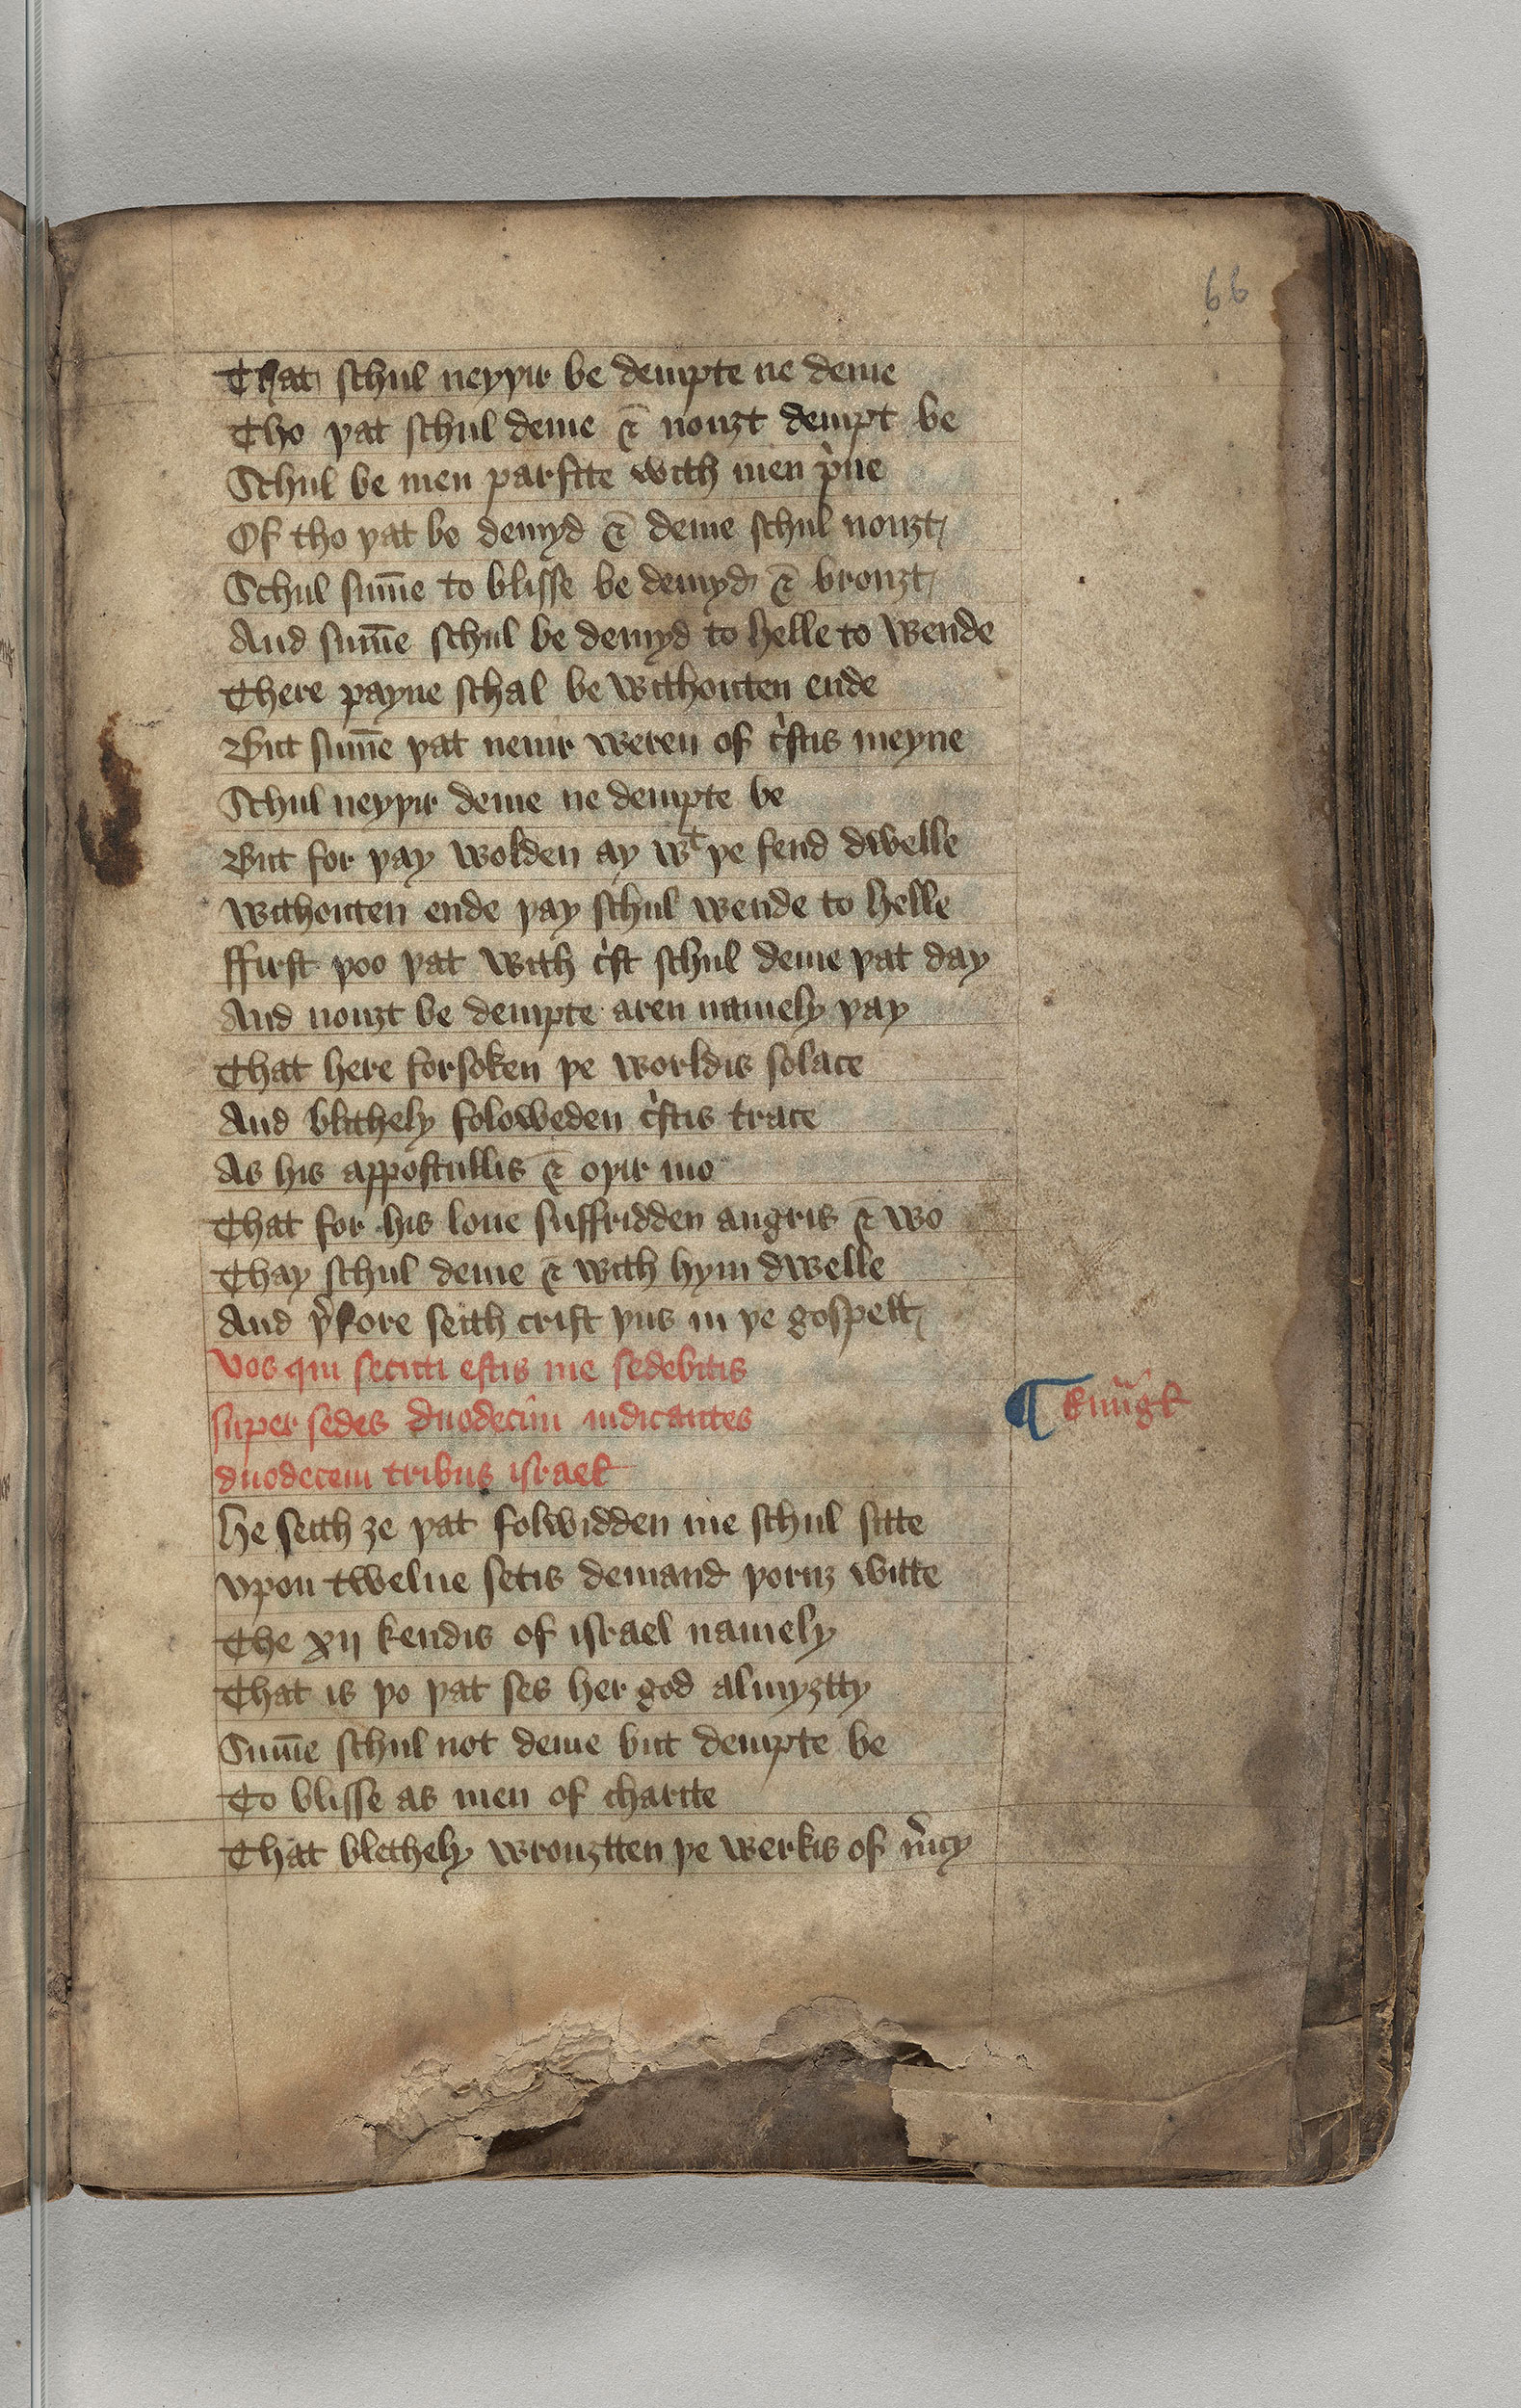 66
That schul neyþir be dempte ne deme
Tho þat schul deme ⁊ nouȝt dempt be
Schul be men parfite with men p̍ue
Of tho þat be demyd ⁊ deme schul nouȝt
Schul sum̄e to blisse be demyd ⁊ brouȝt
And sum̄e schul be demyd to helle to wende
There payne schal be withouten ende
But sum̄e þat neuir weren of c̍stis meyne
Schul neyþir deme ne dempte be
But for þay wolden ay wᵗ þe fend dwelle
Withouten ende þay schul wende to helle
ffirst þoo þat with c̍st schul deme þat day
And nouȝt be dempte aren namely þay
That here forsoken þe worldis solace
And blithely foloweden c̍stis trace
As his appostullis ⁊ oþir mo
That for his loue suffridden angris ⁊ wo
Thay schul deme ⁊ with hym dwelle
And þ̍fore seith crist þus in þe gospell
Vos qui secuti estis me sedebitis
super sedes duodecim iudicantes
duodecem tribus israel
He seith ȝe þat folwidden me schul sitte
Vpon twelue setis demand þoruȝ witte
The xij kendis of israel namely
That is þo þat ses her god almyȝtty
Sum̄e schul not deme but dempte be
To blisse as men of charite
That blethely wrouȝtten þe werkis of m̍cy